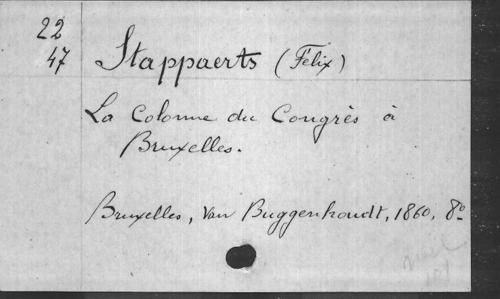 22
47
Stappaerts (Félix)
La Colonne du Congrès à
Bruxelles.
Bruxelles, Van Buggenhoudt, 1860, 8º